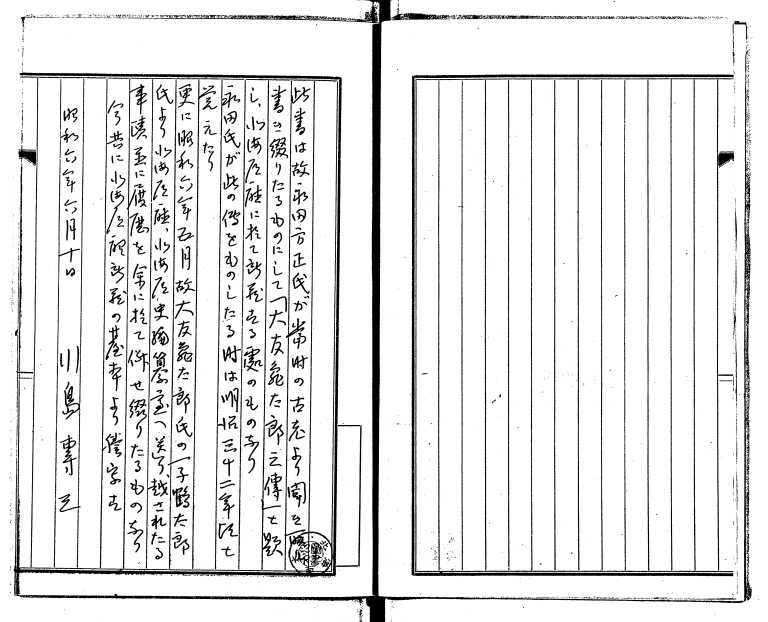 此書は故永田方正氏が當时の古老より聞き
書き綴りたるものにして「大友亀太郎之傳」と題
し、北海道廳に於て所蔵する處のものなり
永田氏が此の傳をものしたる时は明治三十二年頃と
覚えたり
更に昭和六年五月故大友亀太郎氏の一子鶴太郎
氏より北海道廳、北海道史編纂室へ送り越されたる
事蹟並に履歴を余に於て併せ綴りたるものなり
今共に北海道廳所蔵の基本より謄写す
昭和六年六月十日
川島